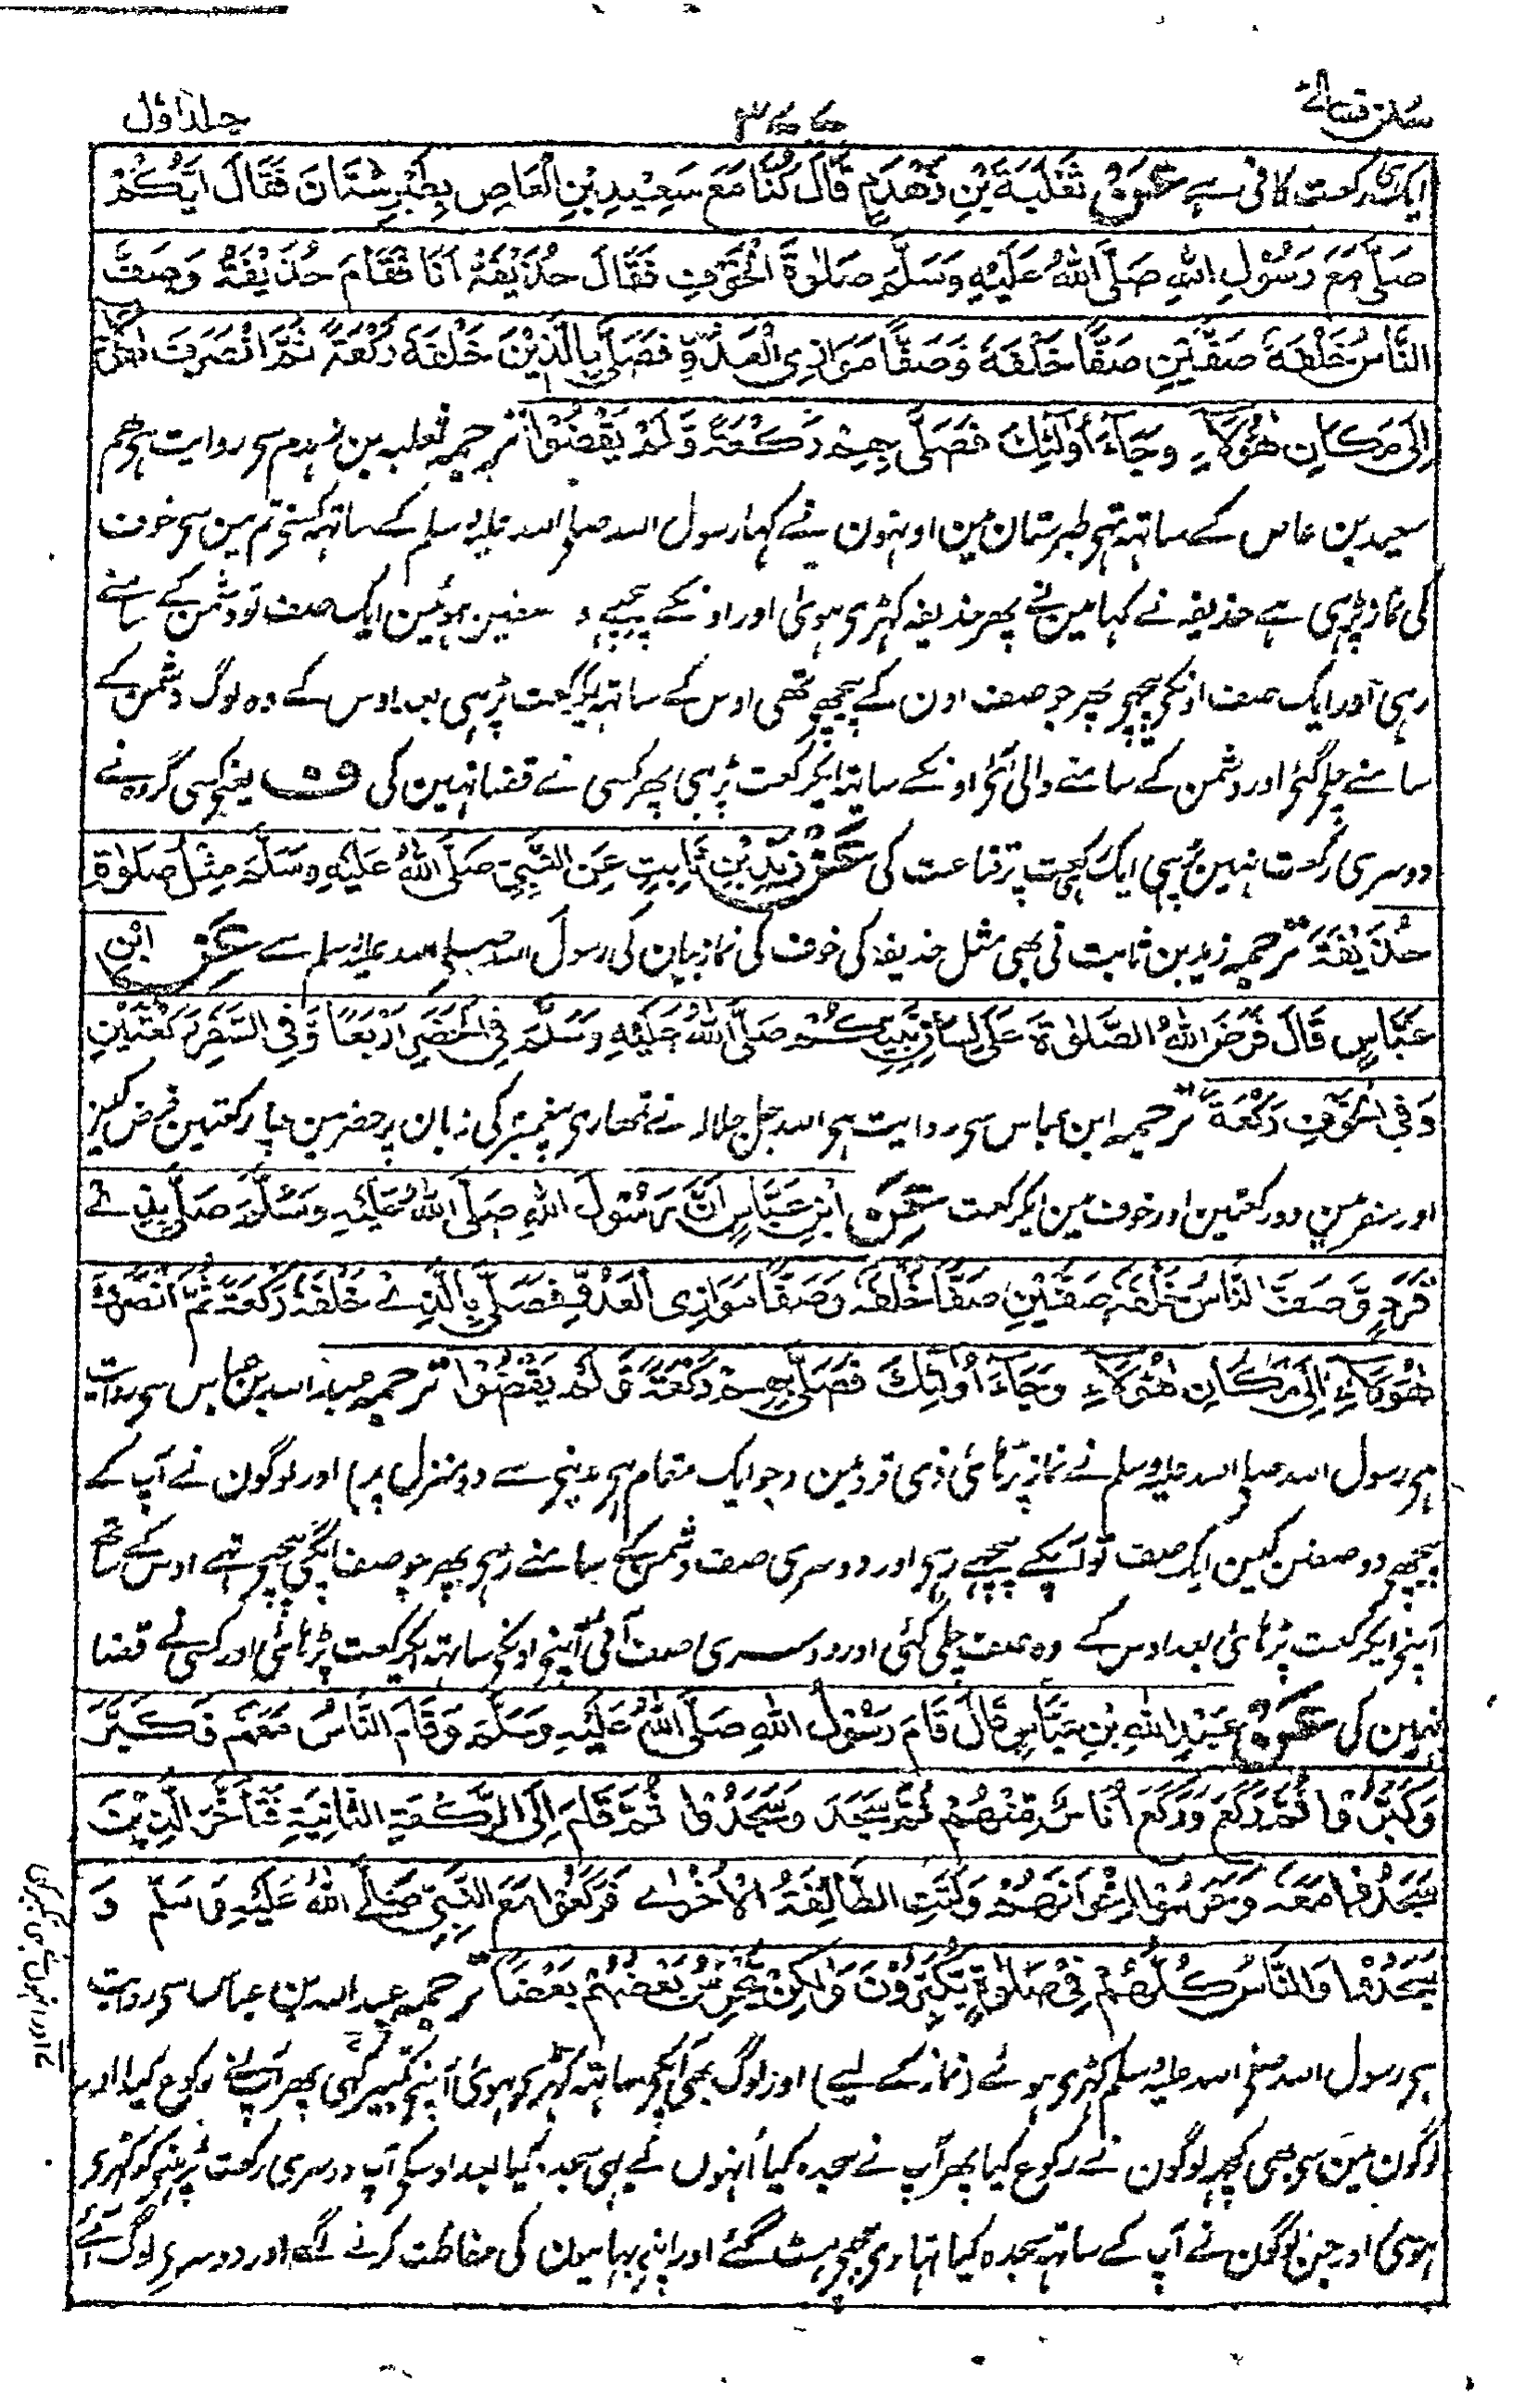 سنن نسائے
۳۷۷
جلد اول
ایک ہی رکعت کافی ہے عَنْ ثَعْلَبَةَ بْنِ زَهْدَمٍ قَالَ كُنَّا مَعَ سَعِيْدِ بْنِ الْعَاصِ بِطَبَرِسْتَانَ فَقَالَ اَيُّكُمْ
صَلّٰى مَعَ رَسُوْلِ اللهِ صَلَّى اللهُ عَلَيْهِ وَسَلَّمَ صَلٰوةَ الْخَوْفِ فَقَالَ حُذَيْفَةُ اَنَا فَقَامَ حُذَيْفَةُ وَصَفَّ
النَّاسُ خَلْفَهٗ صَفَّيْنِ صَفًّا خَلْفَهٗ وَصَفًّا مُوَازِى الْعَدُوِّ فَصَلّٰى بِالَّذِيْنَ خَلْفَهٗ رَكْعَةً ثُمَّ انْصَرَفَ هٰؤُلَاءِ
اِلٰى مَكَانِ هٰؤُلَاءِ وَجَاءَ اُولٰئِكَ فَصَلّٰى بِهِمْ رَكْعَةً وَلَمْ يَقْضُوْا ترجمہ ثعلبہ بن زہدم سے روایت ہے ہم
سعید بن عاص کے ساتہہ تہے طبرستان مین اونہون نے کہا رسول اللہ صلے اللہ علیہ وسلم کے ساتہہ کسنے تم مین سے خوف
کی نماز پڑہی ہے حذیفہ نے کہا مین نے پھر حذیفہ کہڑے ہوئے اور اونکے پیچہے دو صفین ہوئین ایک صف تو دشمن کے سامنے
رہی اور ایک صف اونکے پیچہے پہر جو صف اون کے پیچہے تھی اوس کے ساتہہ ایک رکعت پڑہی بعد اوس کے وہ لوگ دشمن کے
سامنے چلے گئے اور دشمن کے سامنے والے آئے اونکے ساتہہ ایک رکعت پڑہی پھر کسی نے قضا نہین کی ف یعنے کسی گروہ نے
دوسری رکعت نہین پڑہی ایک رکعت پر قناعت کی عَنْ زَيْدِ بْنِ ثَابِتٍ عَنِ النَّبِيِّ صَلَّى اللهُ عَلَيْهِ وَسَلَّمَ مِثْلَ صَلٰوةِ
حُذَيْفَةَ ترجمہ زید بن ثابت نے بھی مثل حذیفہ کی خوف کی نماز بیان کی رسول اللہ صلے اللہ علیہ وسلم سے عَنْ ابْنِ
عَبَّاسٍ قَالَ فَرَضَ اللهُ الصَّلٰوةَ عَلٰى لِسَانِ نَبِيِّكُمْ صَلَّى اللهُ عَلَيْهِ وَسَلَّمَ فِى الْحَضَرِ اَرْبَعًا وَفِى السَّفَرِ رَكْعَتَيْنِ
وَفِى الْخَوْفِ رَكْعَةً ترجمہ ابن عباس سے روایت ہے اللہ جل جلالہ نے تمہارے پیغمبر کی زبان پر حضر مین چار رکعتین فرض کین
اور سفر مین دو رکعتین اور خوف مین ایک رکعت عَنْ ابْنِ عَبَّاسٍ اَنَّ رَسُوْلَ اللهِ صَلَّى اللهُ عَلَيْهِ وَسَلَّمَ صَلّٰى بِذِے
قَرَدٍ وَّصَفَّ النَّاسُ خَلْفَهٗ صَفَّيْنِ صَفًّا خَلْفَهٗ وَصَفًّا مُوَازِى الْعَدُوِّ فَصَلّٰى بِالَّذِے خَلْفَهٗ رَكْعَةً ثُمَّ انْصَرَفَ
هٰؤُلَاءِ اِلٰى مَكَانِ هٰؤُلَاءِ وَجَاءَ اُولٰئِكَ فَصَلّٰى بِهِمْ رَكْعَةً وَلَمْ يَقْضُوْا ترجمہ عبد اللہ بن عباس سے روایت
ہے رسول اللہ صلے اللہ علیہ وسلم نے نماز پڑہائی ذی قرد مین (جو ایک مقام ہے مدینے سے دو منزل پر) اور لوگون نے آپ کے
پیچہے دو صفین کین ایک صف تو آپکے پیچہے رہی اور دوسری صف دشمن کے سامنے رہی پھر جو صف آپکے پیچہے تہے اوس کے ساتھ
آپنے ایک رکعت پڑہائی بعد اوس کے وہ صف چلی گئی اور دوسری صف آئی آپنے اونکے ساتہہ ایک رکعت پڑہائی اور کسی نے قضا
نہین کی عَنْ عَبْدِ اللهِ بْنِ عَبَّاسٍ قَالَ قَامَ رَسُوْلُ اللهِ صَلَّى اللهُ عَلَيْهِ وَسَلَّمَ وَقَامَ النَّاسُ مَعَهٗ فَكَبَّرَ
وَكَبَّرُوْا ثُمَّ رَكَعَ وَرَكَعَ اُنَاسٌ مِّنْهُمْ ثُمَّ سَجَدَ وَسَجَدُوْا ثُمَّ قَامَ اِلَى الرَّكْعَةِ الثَّانِيَةِ فَتَاَخَّرَ الَّذِيْنَ
سَجَدُوْا مَعَهٗ وَحَرَسُوْا اِخْوَانَهُمْ وَاَتَتِ الطَّائِفَةُ الْاُخْرٰے فَرَكَعُوْا مَعَ النَّبِيِّ صَلَّے اللهُ عَلَيْهِ وَسَلَّمَ وَ
سَجَدُوْا وَالنَّاسُ كُلُّهُمْ فِىْ صَلٰوةٍ يُكَبِّرُوْنَ وَلٰكِنْ يَحْرُسُ بَعْضُهُمْ بَعْضًا ترجمہ عبد اللہ بن عباس سے روایت
ہے رسول اللہ صلے اللہ علیہ وسلم کہڑے ہوئے (نماز کے لیے) اور لوگ بھی آپکے ساتہہ کہڑے ہوئے آپنے تکبیر کہی پھر آپنے رکوع کیا اور
لوگون مین سے بھی کچہہ لوگون نے رکوع کیا پھر آپ نے سجدہ کیا اُنہوں نے بہی سجدہ کیا بعد اوسکے آپ دوسری رکعت پڑہنے کو کہڑے
ہوئے اور جن لوگون نے آپ کے ساتہہ سجدہ کیا تہا وہ پیچہے ہٹ گئے اور اپنے بہائیون کی حفاظت کرنے لگے اور دوسرے لوگ آئے
عـہ اور انہوں نے بہی تکبیر کہی